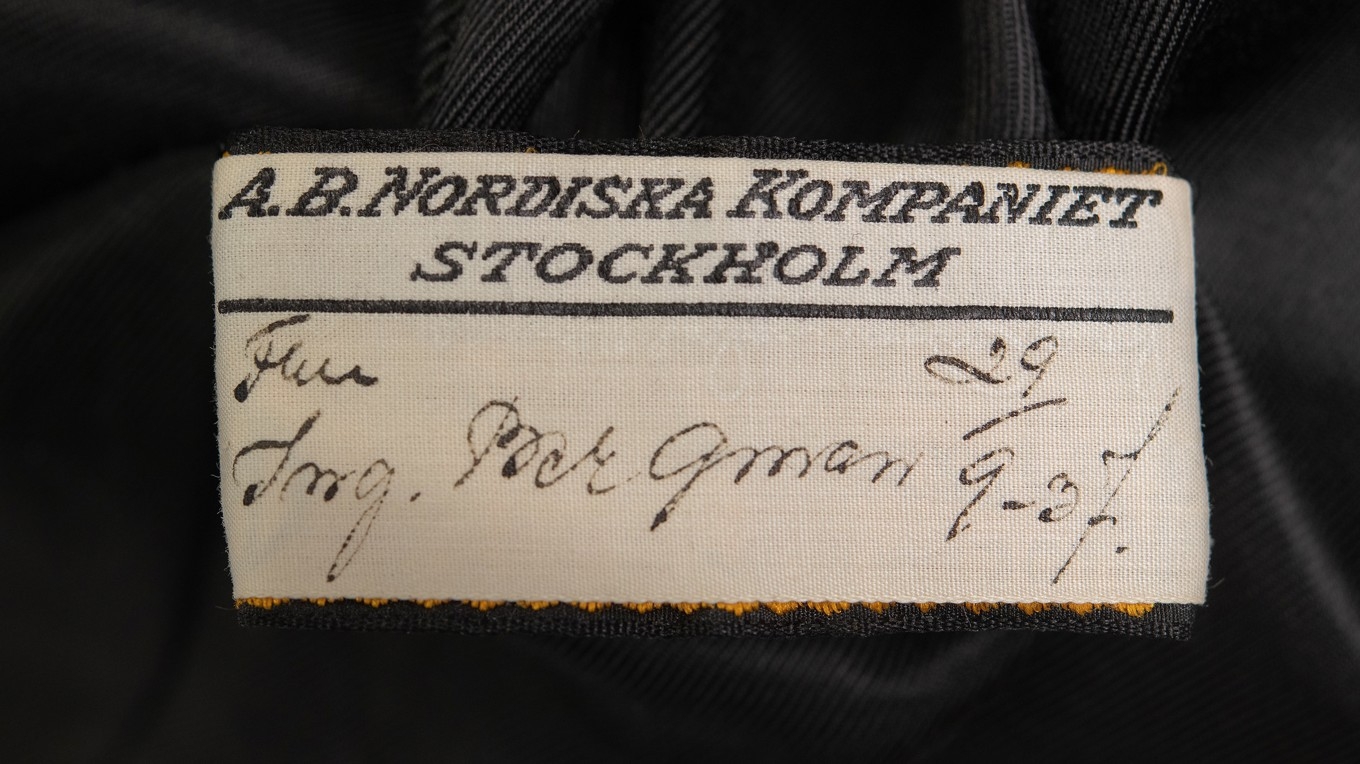 A.B. NORDISKA KOMPANIET
STOCKHOLM
29/
Ing. Bergman 9-37.